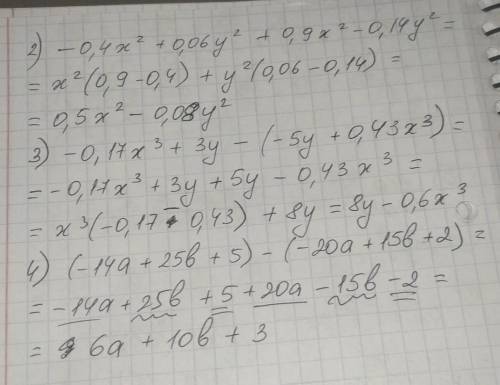 2) -0,4x² + 0,06y² + 0,9x² - 0,14y² =
= x²(0,9-0,4) + y²(0,06-0,14) =
= 0,5x² - 0,08y²
3) -0,17x³ + 3y - (-5y + 0,43x³) =
= -0,17x³ + 3y + 5y - 0,43x³ =
= x³(-0,17 - 0,43) + 8y = 8y - 0,6x³
4) (-14a + 25b + 5) - (-20a + 15b + 2) =
= -14a + 25b + 5 + 20a - 15b - 2 =
= 6a + 10b + 3